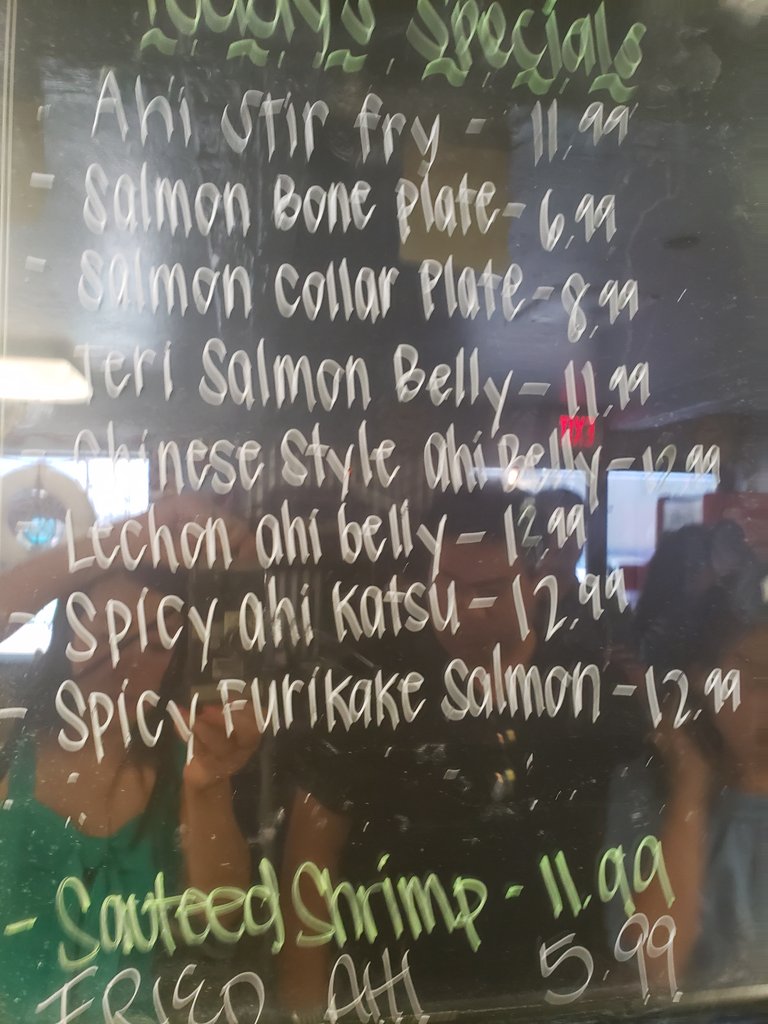 Today's Specials
- Ahi Stir fry - 11.99
- Salmon Bone Plate - 6.99
- Salmon Collar Plate - 8.99
Teri Salmon Belly - 11.99
Chinese Style ahi Belly - 12.99
- Lechon ahi belly - 12.99
- Spicy ahi Katsu - 12.99
- Spicy Furikake Salmon - 12.99
- Sauteed Shrimp - 11.99
FRIED AHI 5.99